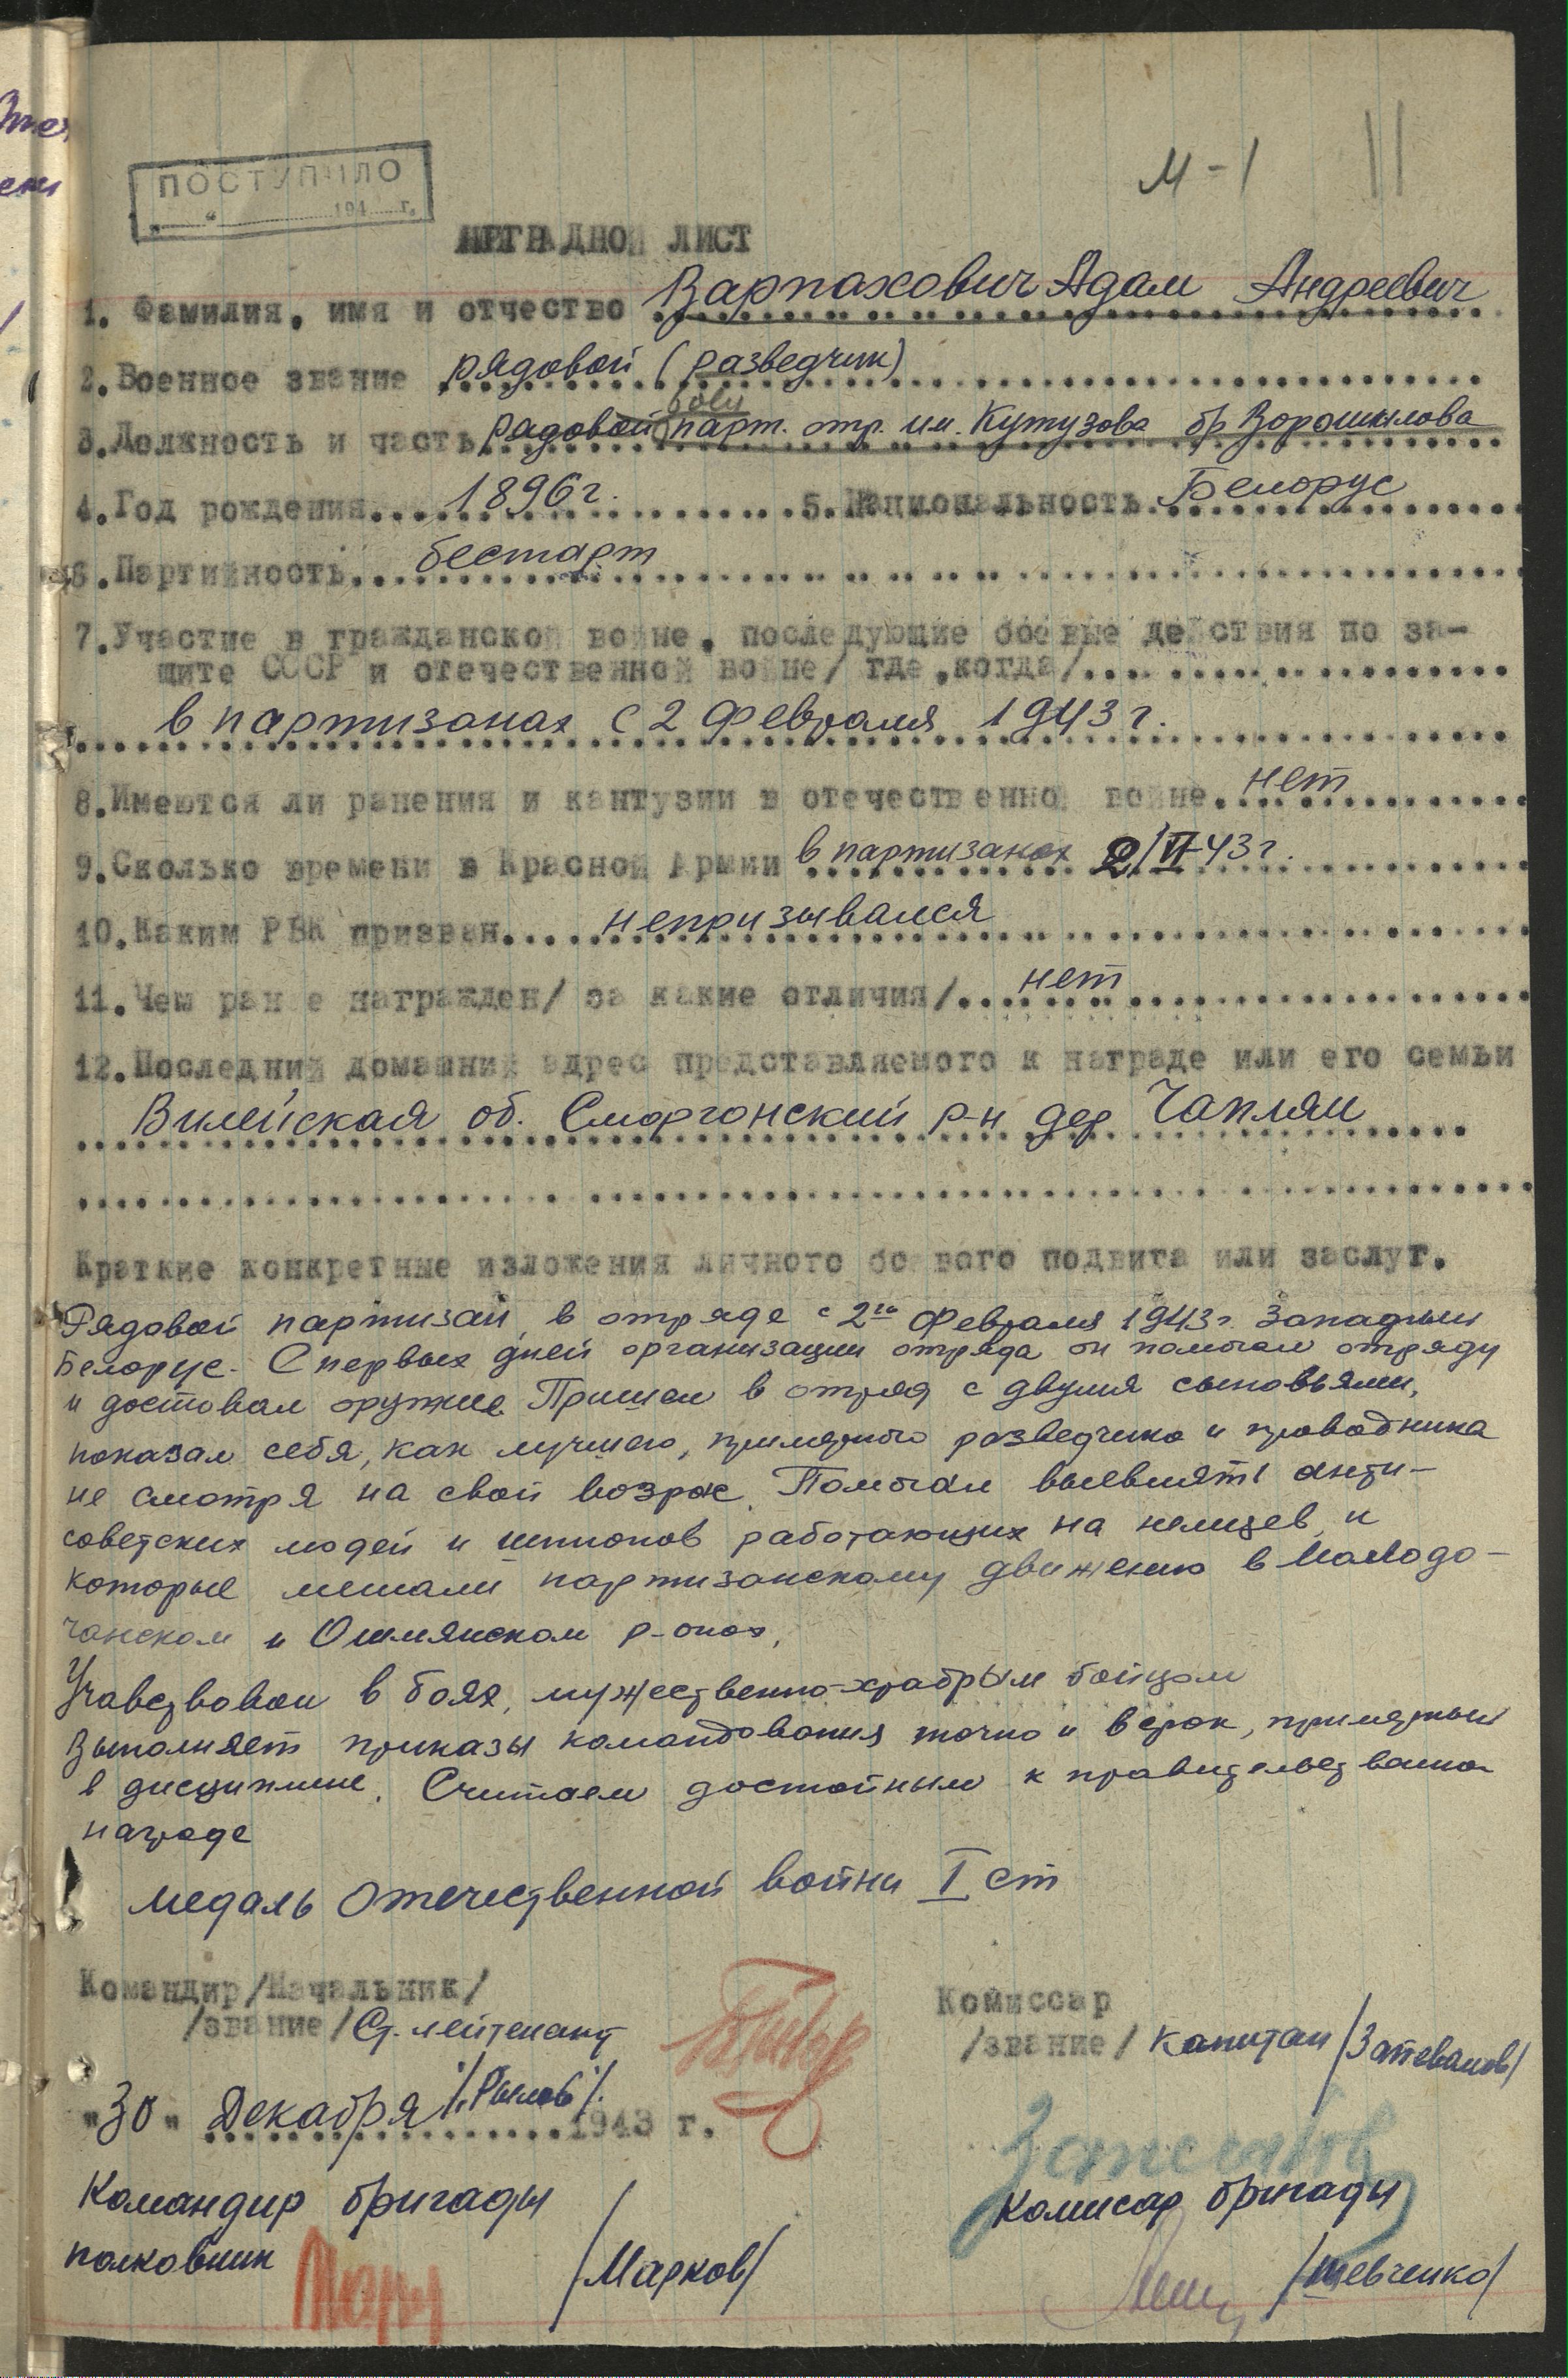 М-1
11
ПОСТУПИЛО
"......" 194 г.
НАГРАДНОЙ ЛИСТ
1. Фамилия, имя и отчество Варпахович Адам Андреевич
2. Военное звание рядовой (разведчик)
3. Должность и часть рядовой парт. отр. им. Кутузова бр Ворошилова
4. Год рождения 1896 г. 5. Национальность Белорус
6. Партийность беспарт
7. Участие в гражданской войне, последующие боевые действия по за-
щите СССР и отечественной войне/ где, когда/
в партизанах с 2 февраля 1943 г.
8. Имеются ли ранения и кантузии в отечественной войне нет
9. Сколько времени в Красной Армии в партизанах 2/VI 43 г.
10. Каким РВК призван непризывался
11. Чем ранее награжден/ за какие отличия/ нет
12. Последний домашний адрес представляемого к награде или его семьи
Вилейская об. Сморгонский р-н дер Чаплян
Краткие конкретные изложения личного боевого подвига или заслуг.
Рядовой партизан, в отряде с 2го февраля 1943 г. Западный
Белорус. С первых дней организации отряда он помогал отряду
и доставал оружие. Пришел в отряд с двумя сыновьями,
показал себя, как лучшего, примерного разведчика и проводника
не смотря на свой возрас. Помогал выевлять анти-
советских людей и шпионов работающих на немцев, и
которые мешали партизанскому движению в Молодо-
чанском и Ошмянском р-онах,
Учавствовал в боях, мужественно-храбрым бойцом
Выполняет приказы командования точно и в срок, примерный
в дисциплине. Считаем достойным к правительственной
награде
медаль Отечественной войны I ст
Командир/Начальник/
/звание/ Ст. лейтенант
/Рылов/.
"30" Декабря 1943 г.
Комиссар
/звание/ Капитан /Запевалов/
Запевалов
Командир бригады
полковник /Марков/
Комисар бригады
/Шевченко/